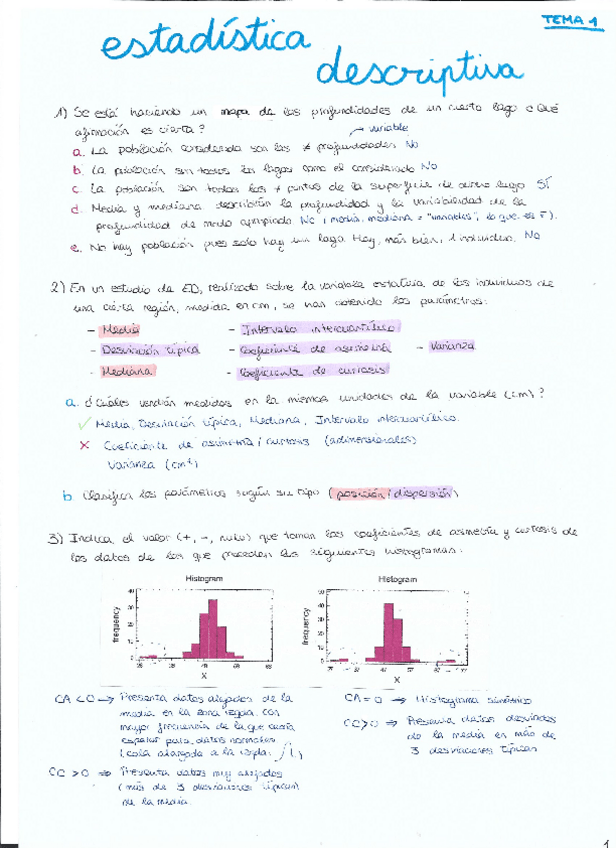 TEMA 1
estadística
descriptiva
1) Se está haciendo un mapa de las profundidades de un cierto lago ¿Qué
afirmación es cierta?
→ variable
a. La población considerada son las ≠ profundidades No
b. La población son todos los lagos como el considerado No
c. La población son todos los ≠ puntos de la superficie de dicho lago SÍ
d. Media y mediana describirán la profundidad y la variabilidad de la
profundidad de modo apropiado No (media, mediana ≠ "variables", lo que es F).
e. No hay población pues solo hay un lago. Hay, más bien, 1 individuo. No
2) En un estudio de ED, realizado sobre la variable estatura de los individuos de
una cierta región, medida en cm, se han obtenido los parámetros:
– Media – Intervalo intercuartílico
– Desviación típica – Coeficiente de asimetría – Varianza
– Mediana – Coeficiente de curtosis
a. ¿Cuáles vendrán medidos en la mismas unidades de la variable (cm)?
✓ Media, Desviación típica, Mediana, Intervalo intercuartílico.
✗ Coeficiente de asimetría / curtosis (adimensionales)
Varianza (cm²)
b Clasifica los parámetros según su tipo (posición / dispersión)
3) Indica el valor (+, –, nulo) que toman los coeficientes de asimetría y curtosis de
los datos de los que proceden los siguientes histogramas:
Histogram Histogram
frequency frequency
X X
CA < 0 → Presenta datos alejados de la
media en la zona izqda. con
mayor frecuencia de la que cabría
esperar para datos normales
(cola alargada a la izqda.)
CC > 0 ⇒ Presenta valores muy alejados
(más de 3 desviaciones típicas)
de la media.
CA = 0 → Histograma simétrico
CC > 0 → Presenta datos desviados
de la media en más de
3 desviaciones típicas
1